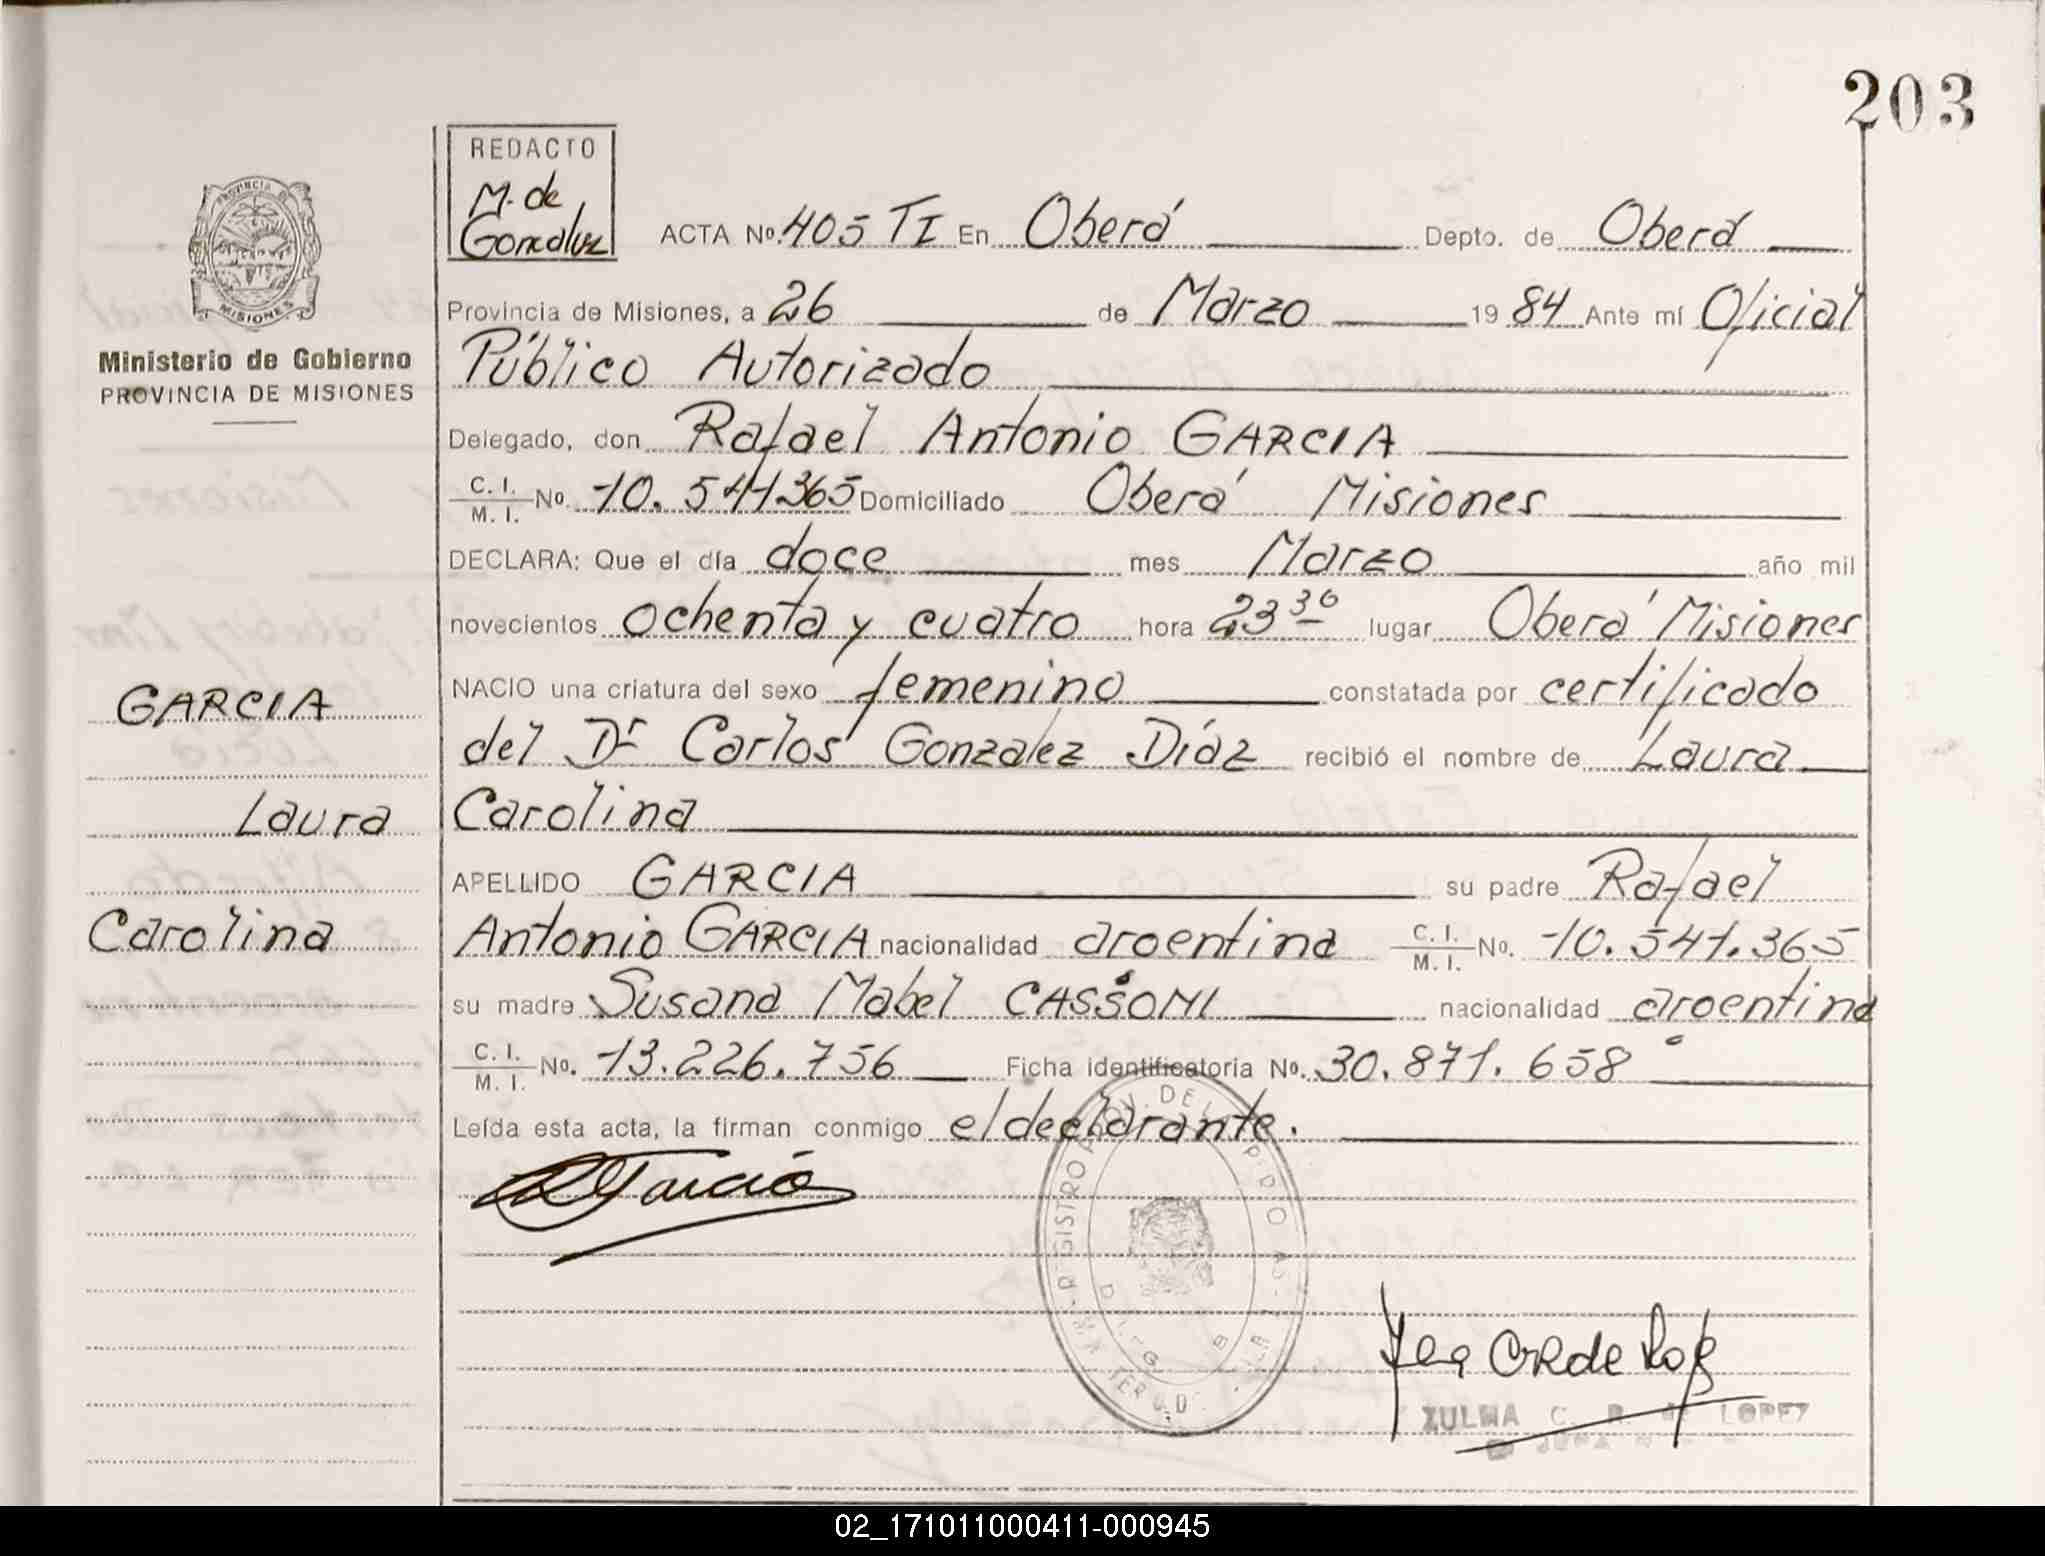 203
REDACTO
M. de
Gonzalez
ACTA No. 405 TI En Oberá Depto. de Oberá
PROVINCIA DE
MISIONES
Provincia de Misiones, a 26 de Marzo 1984 Ante mí Oficial
Ministerio de Gobierno
PROVINCIA DE MISIONES
Público Autorizado
Delegado, don Rafael Antonio GARCIA
C. I. / M. I. No. 10.541365 Domiciliado Oberá Misiones
DECLARA: Que el día doce mes Marzo año mil
novecientos ochenta y cuatro hora 23 30 lugar Oberá Misiones
NACIO una criatura del sexo femenino constatada por certificado
GARCIA
del Dr Carlos Gonzalez Díaz recibió el nombre de Laura
Laura
Carolina
APELLIDO GARCIA su padre Rafael
Carolina
Antonio GARCIA nacionalidad argentina C. I. / M. I. No. 10.541.365
su madre Susana Mabel CASSONI nacionalidad argentina
C. I. / M. I. No. 13.226.756 Ficha identificatoria No. 30.871.658
Leída esta acta, la firman conmigo el declarante.
R Garcia
ZULMA C. R. de LOPEZ
02_171011000411-000945